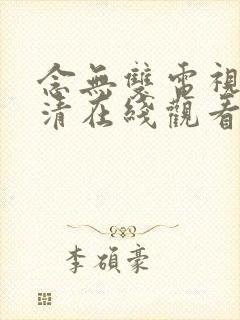 念無雙電視
清在綫觀看
李碩豪